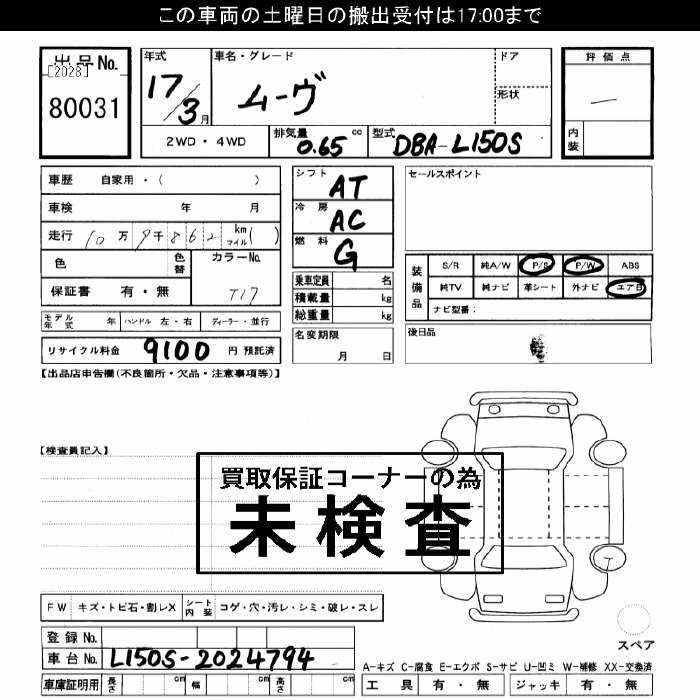 この車両の土曜日の搬出受付は17:00まで
出品No.
[2028]
80031
年式
17/3月
車名・グレード
ムーヴ
ドア
形状
2WD・4WD
排気量 0.65 cc
型式 DBA-L150S
評価点
―
内装
車歴 自家用・( )
車検 年 月
走行 10万9千862 km マイル( )
色
色替
カラーNo.
T17
保証書 有・無
モデル年式 年 ハンドル 左・右 ディーラー・並行
リサイクル料金 9100 円 預託済
シフト AT
冷房 AC
燃料 G
乗車定員 名
積載量 kg
総重量 kg
名変期限
月 日
セールスポイント
装備品
S/R 純A/W P/S P/W ABS
純TV 純ナビ 革シート 外ナビ エアB
ナビ型番:
後日品
【出品店申告欄(不良箇所・欠品・注意事項等)】
【検査員記入】
買取保証コーナーの為
未検査
FW キズ・トビ石・割レX シート内装 コゲ・穴・汚レ・シミ・破レ・スレ
登録No.
車台No. L150S-2024794
車庫証明用 長さ cm 幅 cm 高さ cm
スペア
A-キズ C-腐食 E-エクボ S-サビ U-凹ミ W-補修 XX-交換済
工具 有・無 ジャッキ 有・無